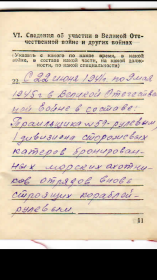 VI. Сведения об участии в Великой Оте-
чественной войне и других войнах
(Указать с какого по какое время, в какой
войне, в составе какой части, на какой должно-
сти, по какой специальности)
С 22 июня 1941 по 9 мая
1945 г. в Великой Отечестве
ной войне в составе:
Тральщика №59-рулевым,
дивизиона сторожевых
катеров бронирован-
ных морских охотни-
ков отрядов вновь
строящих кораблей-
рулевым.
51